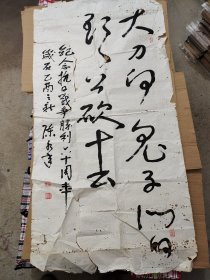 大刀向鬼子们的
头上砍去
纪念抗日战争胜利六十周年
岁在乙酉之秋 陈